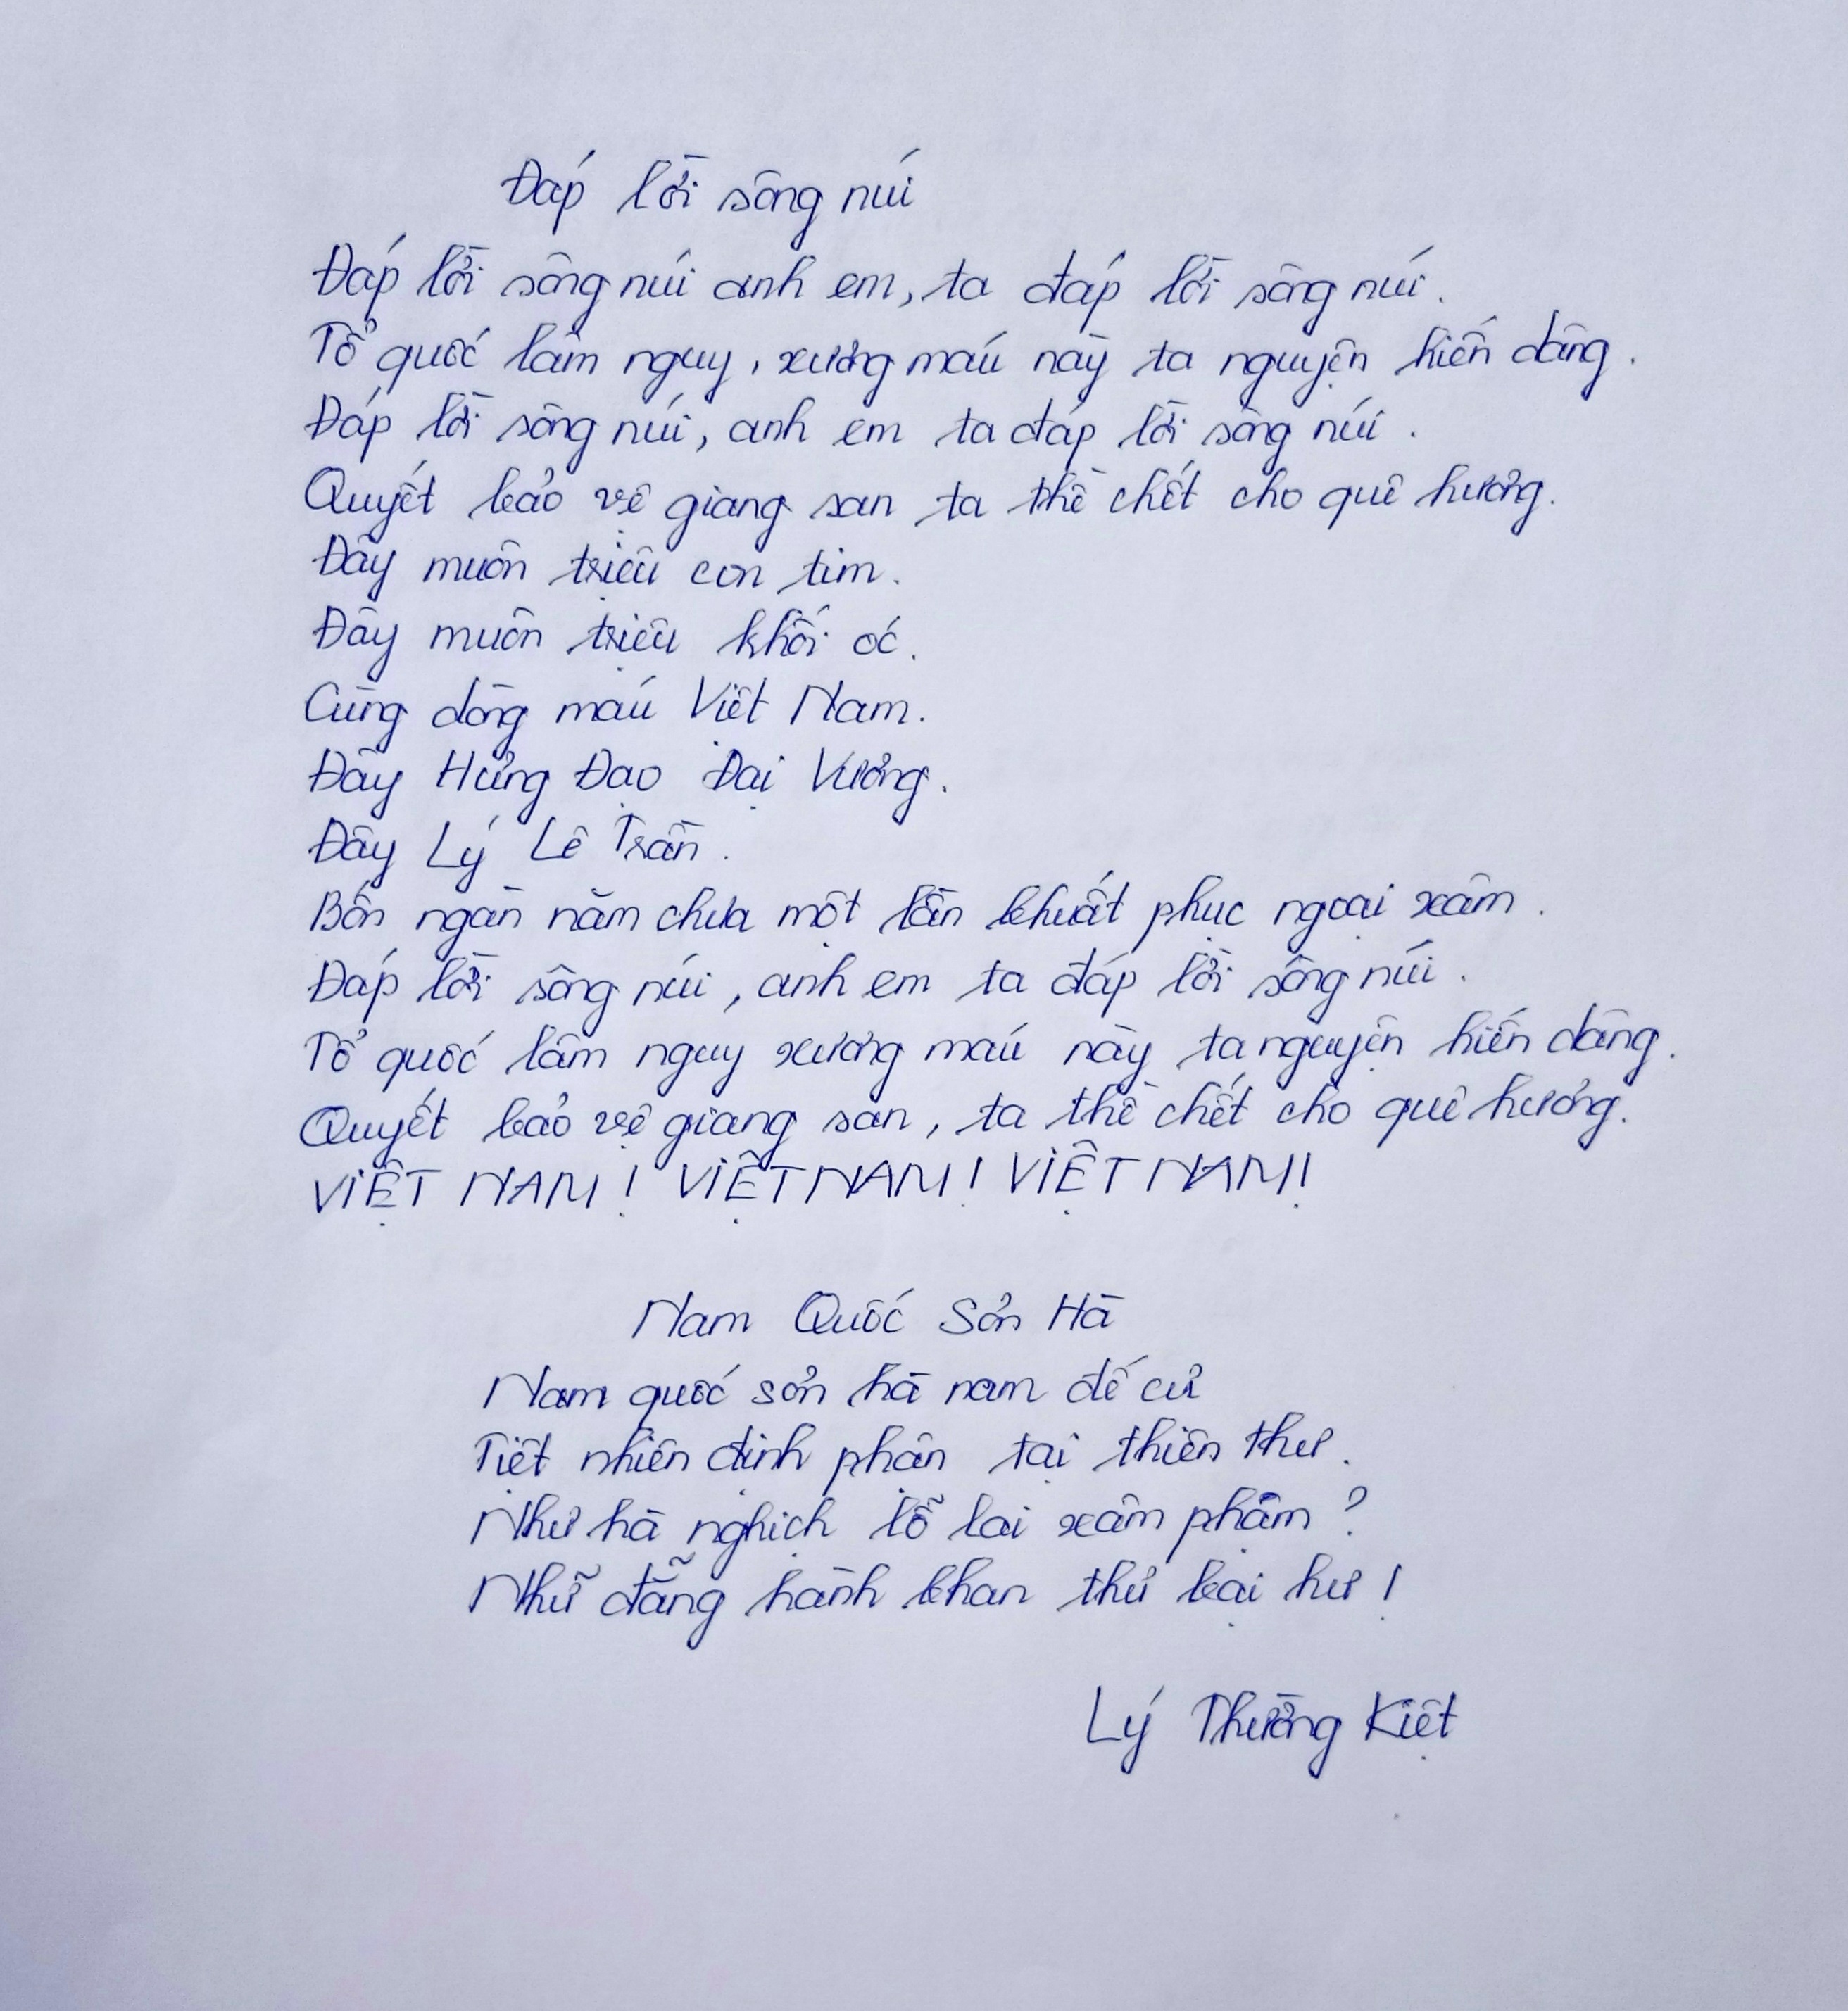 Đáp lời sông núi
Đáp lời sông núi anh em, ta đáp lời sông núi.
Tổ quốc lâm nguy, xương máu này ta nguyện hiến dâng.
Đáp lời sông núi, anh em ta đáp lời sông núi.
Quyết bảo vệ giang san ta thề chết cho quê hương.
Đây muôn triệu con tim.
Đây muôn triệu khối óc.
Cùng dòng máu Việt Nam.
Đây Hưng Đạo Đại Vương.
Đây Lý Lê Trần.
Bốn ngàn năm chưa một lần khuất phục ngoại xâm.
Đáp lời sông núi, anh em ta đáp lời sông núi.
Tổ quốc lâm nguy xương máu này ta nguyện hiến dâng.
Quyết bảo vệ giang san, ta thề chết cho quê hương.
VIỆT NAM! VIỆT NAM! VIỆT NAM!
Nam Quốc Sơn Hà
Nam quốc sơn hà nam đế cư
Tiệt nhiên định phận tại thiên thư.
Như hà nghịch lỗ lai xâm phạm?
Nhữ đẳng hành khan thủ bại hư!
Lý Thường Kiệt